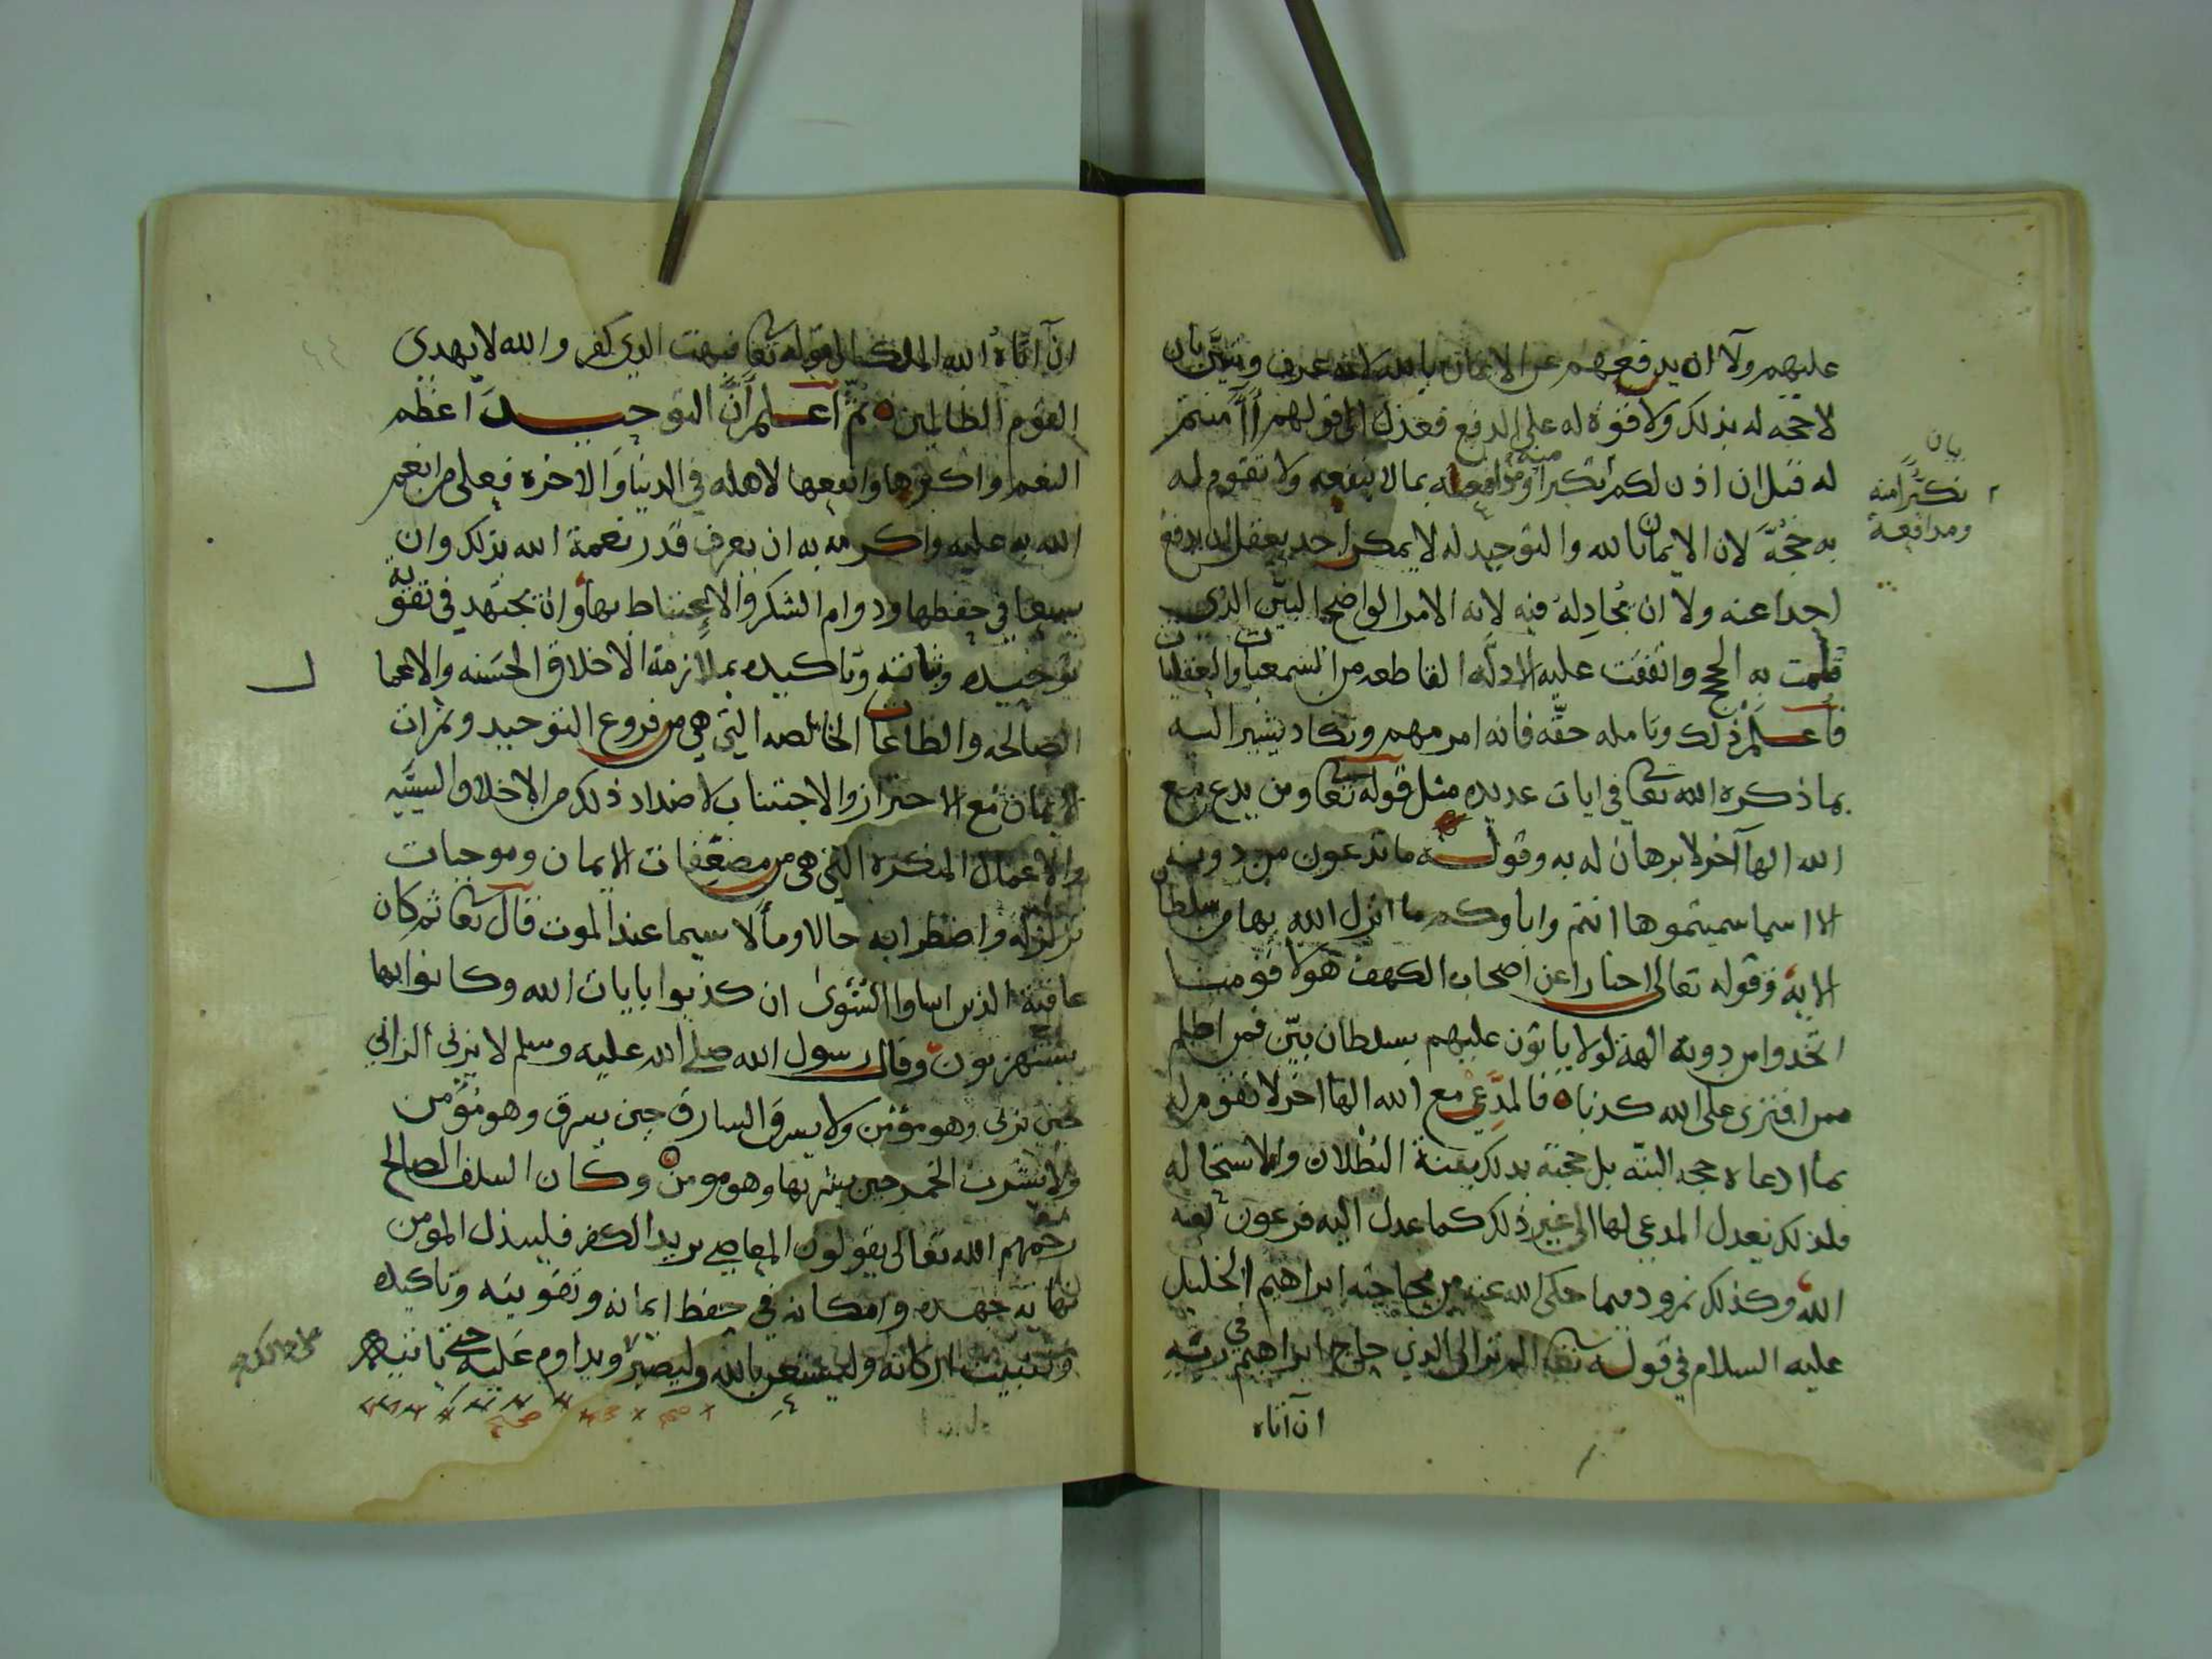 عليهم ولا ان يدفعهم عن الايمان بالله لانه عرف وتيقن بان
لا حجه له بذلك ولا قوة له على الدفع فعدل الى قولهم أآمنتم
له قبل ان اذن لكم تكبرا منه ومدافعة بما لا ينفعه ولا تقوم له
به حُجّة لان الايمان بالله والتوحيد له لا يمكن احد يعقل ان يدفع
احدا عنه ولا ان يُجادِله فيه لانه الامر الواضح البيّن الذي
قامت به الحجج واتفقت عليه الادله القاطعه من السمعيات والعقليات
فاعلم ذلك وتامله حقّه فانه امر مهم وتكاد يشير اليه
بما ذكره الله تعا في ايات عديده مثل قوله تعا ومن يدع مع
الله الها آخر لا برهان له به وقوله ما تدعون من دونه
الا اسما سميتموها انتم واباوكم ما انزل الله بها من سلطان
الايه وقوله تعالى اخبارا عن اصحاب الكهف هولا قومنا
اتخذوا من دونه الهة لولا ياتون عليهم بسلطان بيّن فمن اظلم
ممن افترى على الله كذبا ه فالمدّعي مع الله الها اخر لا تقوم له
بما ادعاه حجه البتّه بل حجته بذلك بينة البُطلان والاستحاله
فلذلك يعدل المدعي لها الى غير ذلك كما عدل اليه فرعون لعنه
الله وكذلك نمرود فيما حكى الله عنه من محاجته ابراهيم الخليل
عليه السلام في قوله تعا الم تر الى الذي حاج ابراهيم في ربّه
ان آتاه
بان
تكبّرا منه
ومدافعة
ان آتاهُ الله الملك الى قوله تعا فبهت الذي كفر والله لا يهدي
القوم الظالمين ه ثم اعلم أنَّ التوحيد اعظم
النعم واكبرها وانفعها لاهله في الدنيا والاخره فعلى من انعم
الله به عليه واكرمه به ان يعرف قدر نعمة الله بذلك وان
يسعا في حفظها ودوام الشكر والاغتباط بها وان يجتهد في تقوية
توحيده وثباته وتاكيده بملازمة الاخلاق الحسنه والاعمال
الصالحه والطاعات الخالصه التي هي من فروع التوحيد وثمرات
الايمان مع الاحتراز والاجتناب لاضداد ذلك من الاخلاق السيّيه
والاعمال المنكره التي هي من مضعِفات الايمان وموجبات
تزلزله واضطرابه حالا ومآلا سيما عند الموت قال تعا ثم كان
عاقبة الذين اساوا السّوى ان كذبوا بايات الله وكانوا بها
يستهزيون وقال رسول الله صلى الله عليه وسلم لا يزني الزاني
حين يزني وهو مؤمن ولا يسرق السارق حين يسرق وهو مؤمن
ولا يشرب الخمر حين يشربها وهو مومن وكان السلف الصالح
رحمهم الله تعالى يقولون المعاصي بريد الكفر فليبذل المومن
نهاية جهده وامكانه في حفظ ايمانه وتقويته وتاكيده
وتثبيت اركانه وليستعن بالله وليصبر ويداوم عليه حتى ياتيه